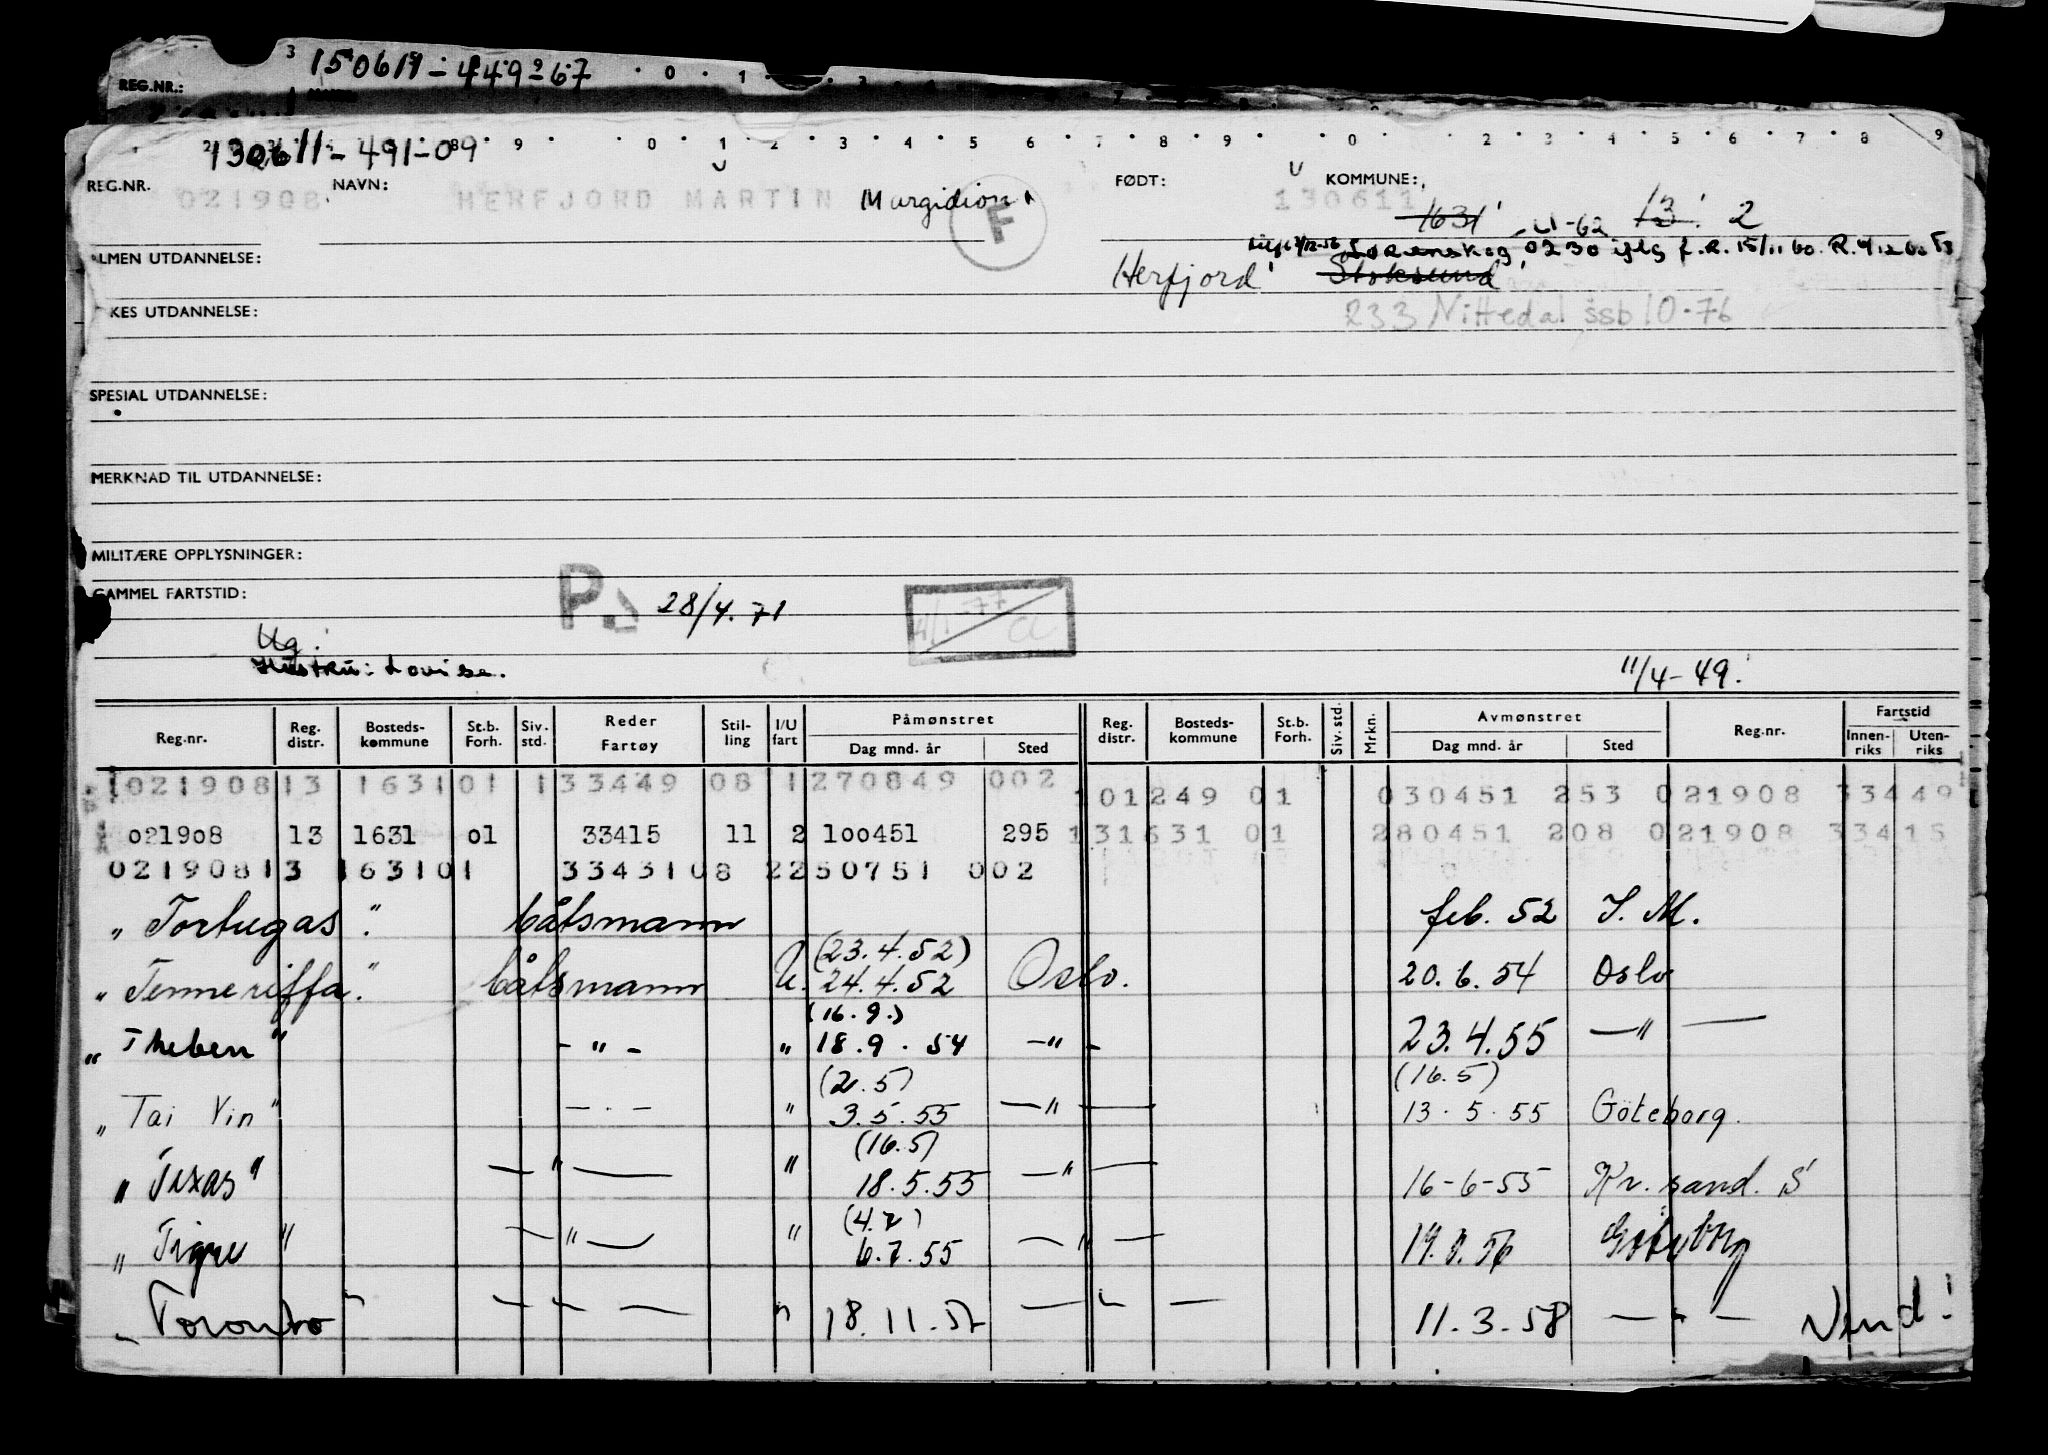 REG.NR.: 150611-449-67
130611-491-09
REG.NR. 021908 NAVN: HERFJORD MARTIN Margidion F FØDT: 130611 KOMMUNE: 1631 -U-62 13 2
Lørenskog 0230 iflg f.R. 15/11 60. R. 4/12 60
ALMEN UTDANNELSE: Herfjord Stoksund
KES UTDANNELSE: 233 Nittedal ssb 10.76
SPESIAL UTDANNELSE:
MERKNAD TIL UTDANNELSE:
MILITÆRE OPPLYSNINGER:
GAMMEL FARTSTID: P. 28/4.71 4/1-77
Ug.
Hustru: Lovise. 11/4-49.
Reg.nr. Reg. distr. Bosteds-kommune St.b. Forh. Siv. std. Reder Fartøy Stil-ling I/U fart Påmønstret Dag mnd. år Sted Reg. distr. Bosteds-kommune St.b. Forh. Siv. std. Mrkn. Avmønstret Dag mnd. år Sted Reg.nr. Fartstid Innen-riks Uten-riks
021908 13 1631 01 1 33449 08 1 270849 002 101249 01 030451 253 021908 33449
021908 13 1631 01 33415 11 2 100451 295 131631 01 280451 208 021908 33415
021908 13 1631 01 33431 08 2 250751 002
„ Tortugas " båtsmann feb. 52 S. M.
(23.4.52)
„ Tenneriffa " båtsmann U. 24.4.52 Oslo. 20.6.54 Oslo
(16.9.)
„ Theben " - " - " 18.9.54 -"- 23.4.55 —"—
(2.5) (16.5)
„ Tai Yin " — . — " 3.5.55 —"— 13.5.55 Göteborg.
(16.5)
„ Texas " —"— " 18.5.55 —"— 16-6-55 Kr.sand. S
(4.7)
„ Tigre " —"— " 6.7.55 —"— 19.8.56 Göteborg
„ Toronto " —"— " 18.11.57 —"— 11.3.58 —"— Vend!